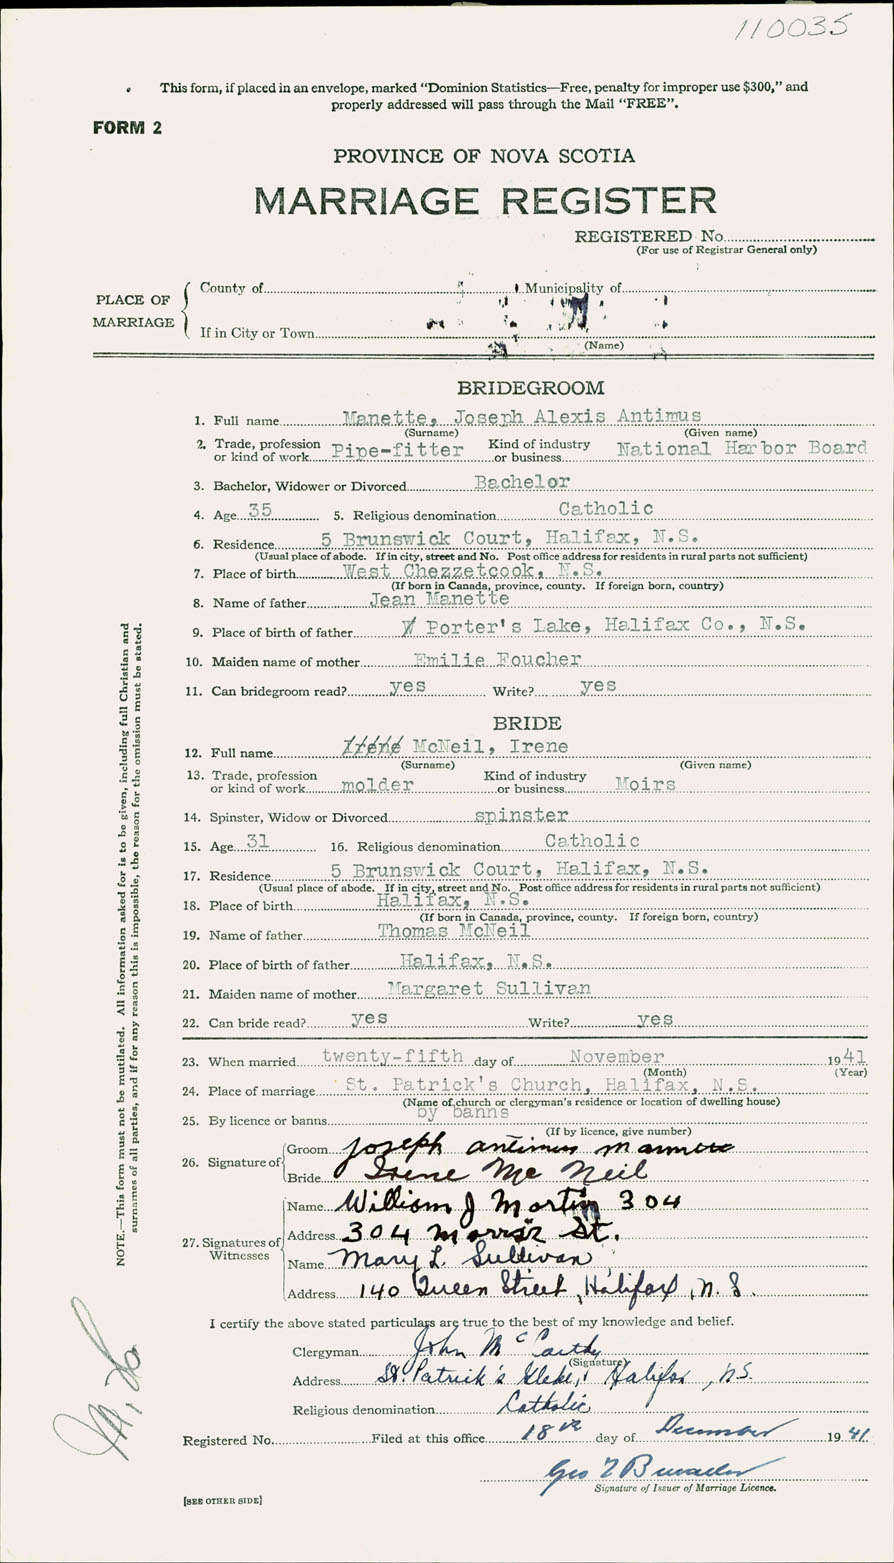 110035
This form, if placed in an envelope, marked "Dominion Statistics—Free, penalty for improper use $300," and
properly addressed will pass through the Mail "FREE".
FORM 2
PROVINCE OF NOVA SCOTIA
MARRIAGE REGISTER
REGISTERED No.
(For use of Registrar General only)
PLACE OF MARRIAGE
County of Municipality of
If in City or Town
(Name)
BRIDEGROOM
1. Full name Manette, Joseph Alexis Antimus
(Surname) (Given name)
2. Trade, profession or kind of work Pipe-fitter Kind of industry or business National Harbor Board
3. Bachelor, Widower or Divorced Bachelor
4. Age 35 5. Religious denomination Catholic
6. Residence 5 Brunswick Court, Halifax, N.S.
(Usual place of abode. If in city, street and No. Post office address for residents in rural parts not sufficient)
7. Place of birth West Chezzetcook, N.S.
(If born in Canada, province, county. If foreign born, country)
8. Name of father Jean Manette
9. Place of birth of father Porter's Lake, Halifax Co., N.S.
10. Maiden name of mother Emilie Foucher
11. Can bridegroom read? yes Write? yes
BRIDE
12. Full name Irene McNeil, Irene
(Surname) (Given name)
13. Trade, profession or kind of work molder Kind of industry or business Moirs
14. Spinster, Widow or Divorced spinster
15. Age 31 16. Religious denomination Catholic
17. Residence 5 Brunswick Court, Halifax, N.S.
(Usual place of abode. If in city, street and No. Post office address for residents in rural parts not sufficient)
18. Place of birth Halifax, N.S.
(If born in Canada, province, county. If foreign born, country)
19. Name of father Thomas McNeil
20. Place of birth of father Halifax, N.S.
21. Maiden name of mother Margaret Sullivan
22. Can bride read? yes Write? yes
23. When married twenty-fifth day of November 1941
(Month) (Year)
24. Place of marriage St. Patrick's Church, Halifax, N.S.
(Name of church or clergyman's residence or location of dwelling house)
25. By licence or banns by banns
(If by licence, give number)
26. Signature of Groom Joseph antimus
Bride Irene Mc Neil
27. Signatures of Witnesses Name William J Martin 304
Address 304 St.
Name Mary L. Sullivan
Address 140 Queen Street, Halifax, N.S.
I certify the above stated particulars are true to the best of my knowledge and belief.
Clergyman John McCarthy
(Signature)
Address St. Patrick's Glebe, Halifax, N.S.
Religious denomination Catholic
Registered No. Filed at this office 18th day of December 1941
Geo
Signature of Issuer of Marriage Licence.
[SEE OTHER SIDE]
NOTE.—This form must not be mutilated. All information asked for is to be given, including full Christian and
surnames of all parties, and if for any reason this is impossible, the reason for the omission must be stated.